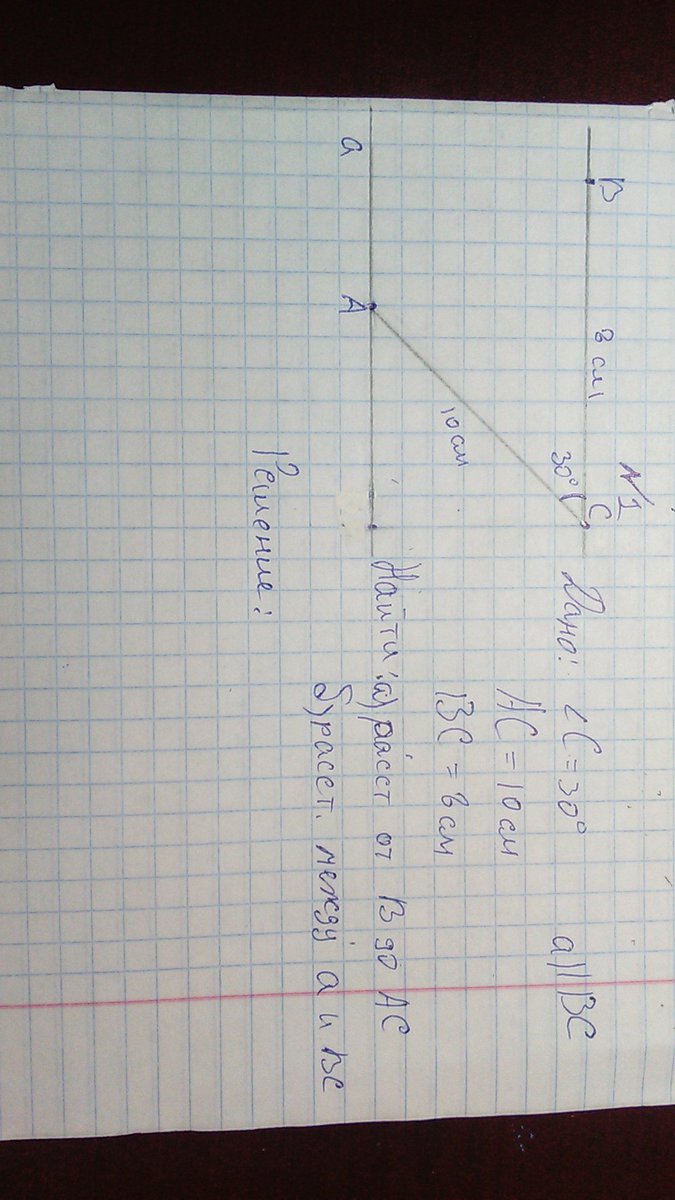 N1
B
8 см
30°
C
10 см
a
A
Дано: ∠C = 30° a||BC
AC = 10 см
BC = 8 см
Найти: а) расст от B до AC
б) расст. между a и BC
Решение: